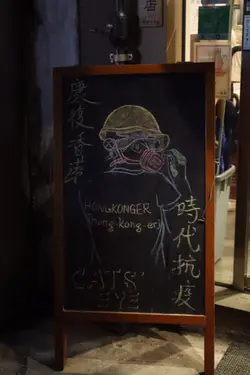 店
康復香港
HONGKONGER
[hong-kong-er]
時代抗疫
CATS'
EYE